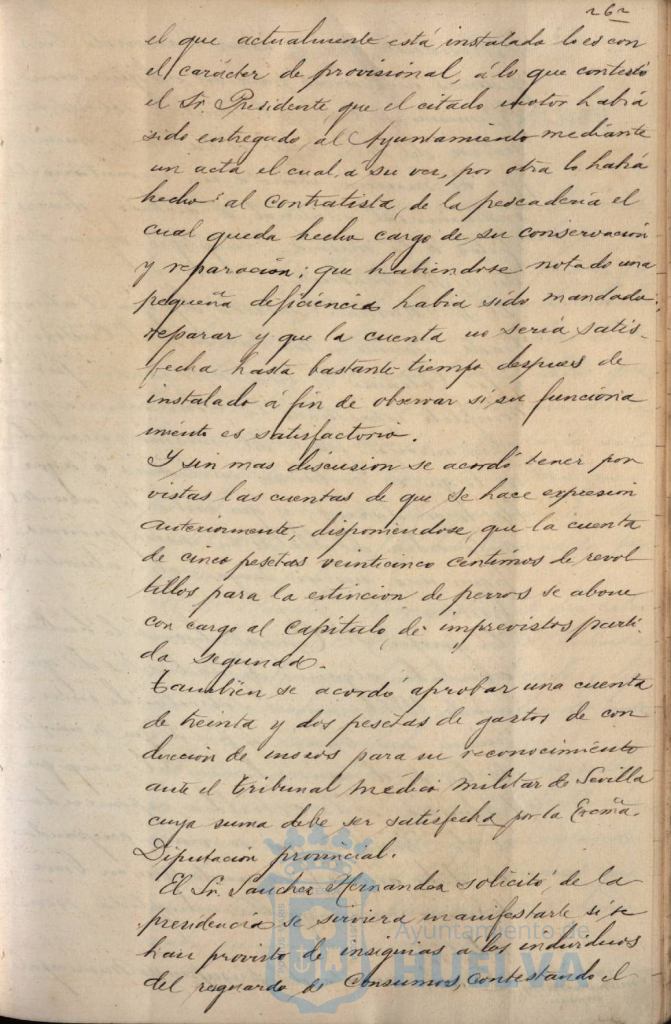 262
el que actualmente está instalado lo es con
el carácter de provisional, á lo que contestó
el Sr. Presidente que el citado motor habiá
sido entregado al Ayuntamiento mediante
un acta el cual, á su vez, por otra lo habiá
hecho al contratista de la pescadería el
cual queda hecho cargo de su conservación
y reparación; que habiendose notado una
pequeña deficiencia habia sido mandada
reparar y que la cuenta no sería satis-
fecha hasta bastante tiempo despues de
instalado á fin de observar si su funciona
miento es satisfactorio.
Y sin mas discusion se acordó tener por
vistas las cuentas de que se hace expresion
anteriormente, disponiendose que la cuenta
de cinco pesetas veinticinco centimos de revol
tillos para la estincion de perros se abone
con cargo al Capitulo de imprevistos parti-
da segunda.
Tambien se acordó aprobar una cuenta
de treinta y dos pesetas de gastos de con
duccion de mozos para su reconocimiento
ante el tribunal médico militar de Sevilla
cuya suma debe ser satisfecha por la Excmã.
Diputación provincial.
El Sr. Sanchez Hernandez solicitó de la
presidencia se sirviera manifestarle si se
han provisto de insignias a los individuos
del resguardo de Consumos, contestando el
Ayuntamiento de
HUELVA